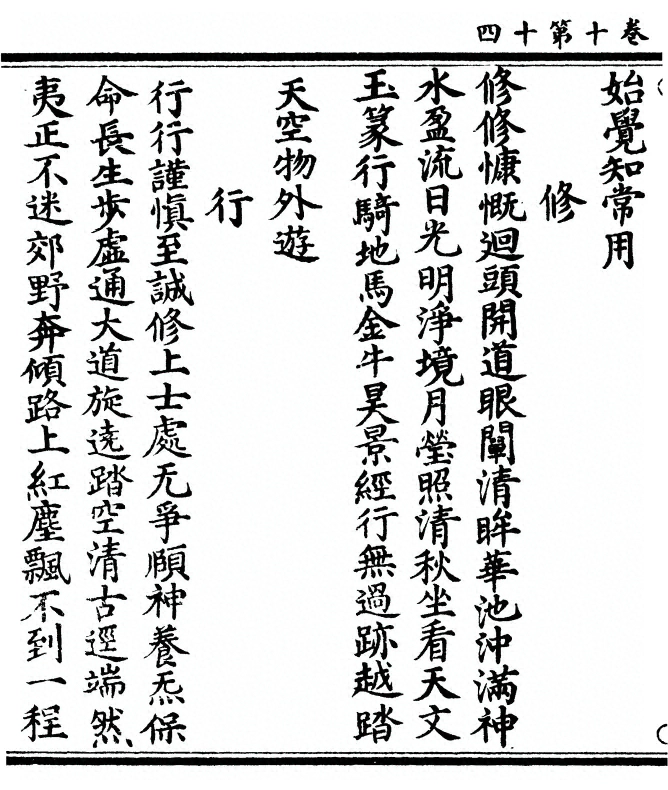 卷十第十四
始覺知常用
修
修修慷慨迴頭開道眼闡清眸華池沖滿神
水盈流日光明淨境月瑩照清秋坐看天文
玉篆行騎地馬金牛昊景經行無過跡越踏
天空物外遊
行
行行謹慎至誠修上士處无爭頤神養炁保
命長生步虛通大道旋遶踏空清古逕端然
夷正不迷郊野奔傾路上紅塵飄不到一程